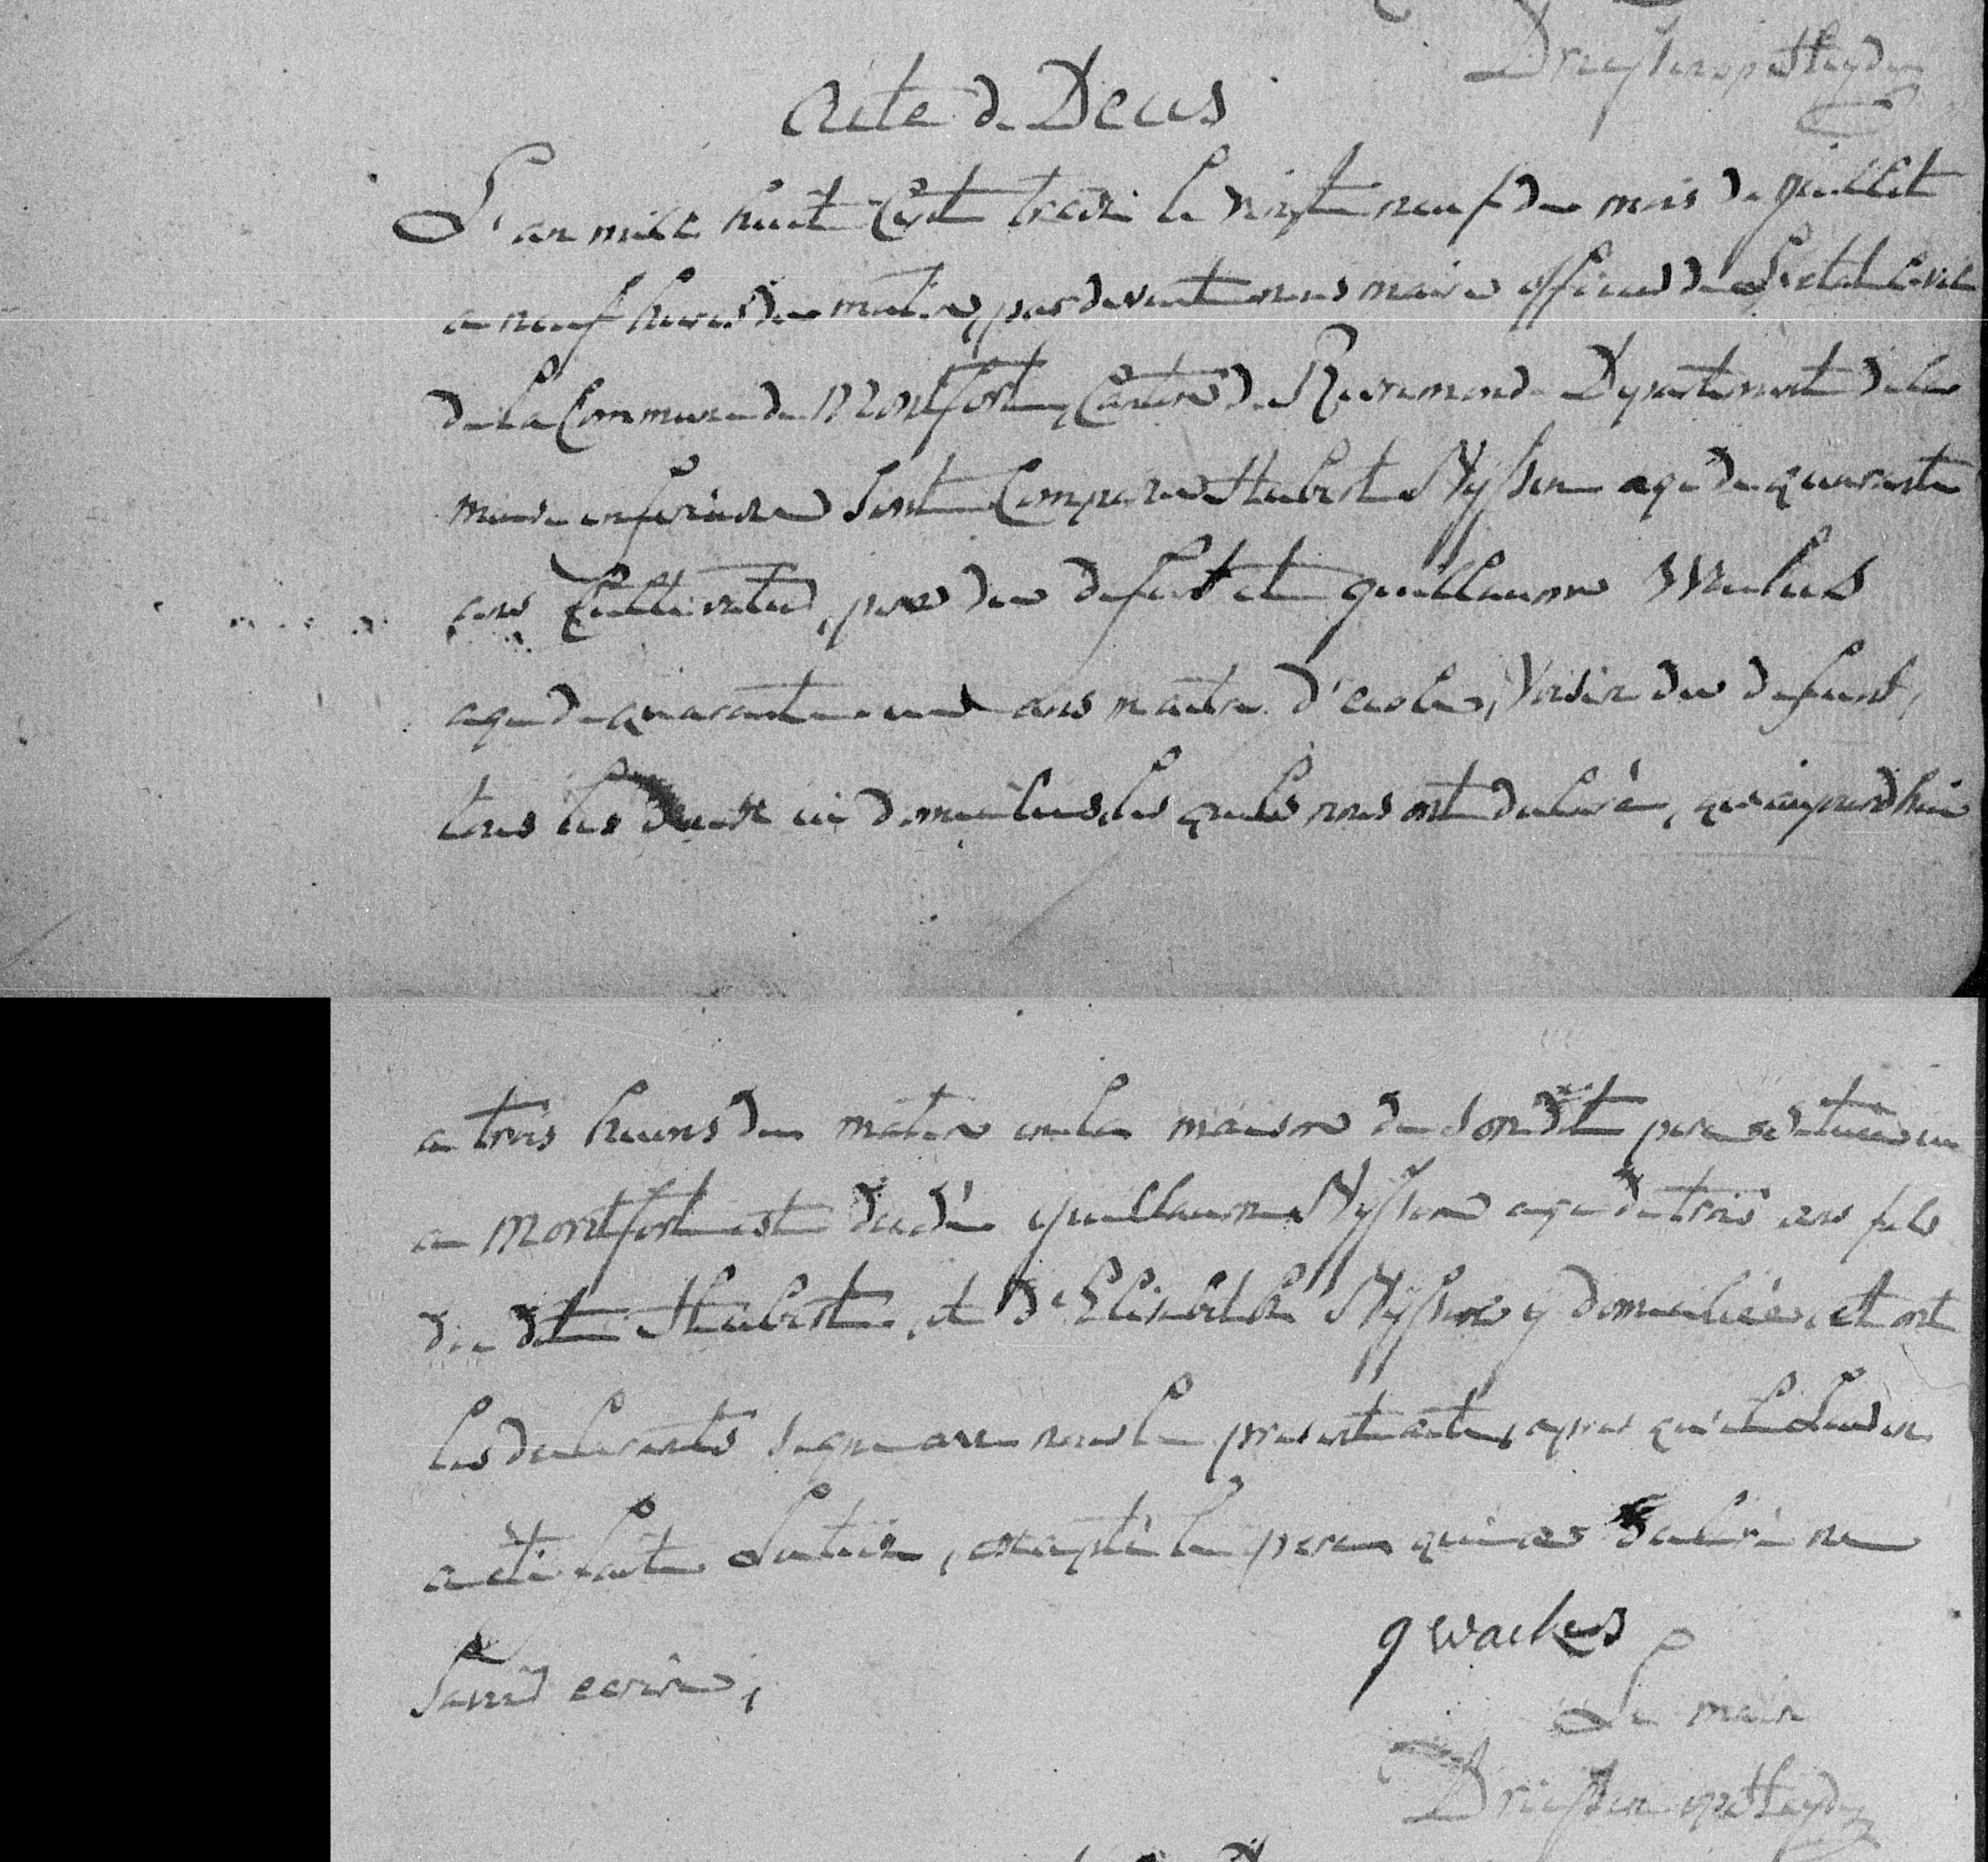 Driessen op Heyden
Acte de Deces
L'an mille huit Cent treize le vingt neuf du mois de juillet
a neuf heures du matin, pardevant nous maire officier de L'etat Civil
de la Commune de Montfort, Canton de Ruremonde Departement de la
meuse inferieure sont Comparu Hubert Nyssen agé de quarante
ans Cultivateur, pere du defunt et guillaume Wackers
agé de quarante ans maitre d'ecole, Voisin du defunt,
tous les deux ici domicilies, les quels nous ont declaré, que aujourdhui
a trois heures du matin en la maison de son dit pere située
a Montfort est decedé guillaume Nyssen agé de trois ans fils
du dit Hubert, et d'Elisabeth Nyssen y domiciliée, et ont
les declarants signe avec nous le present acte, apres qu'il Leur en
a eté fait Lecture, excepté le pere qui a declaré ne
savoir ecrire,
g wackers
Le maire
Driessen op Heyden